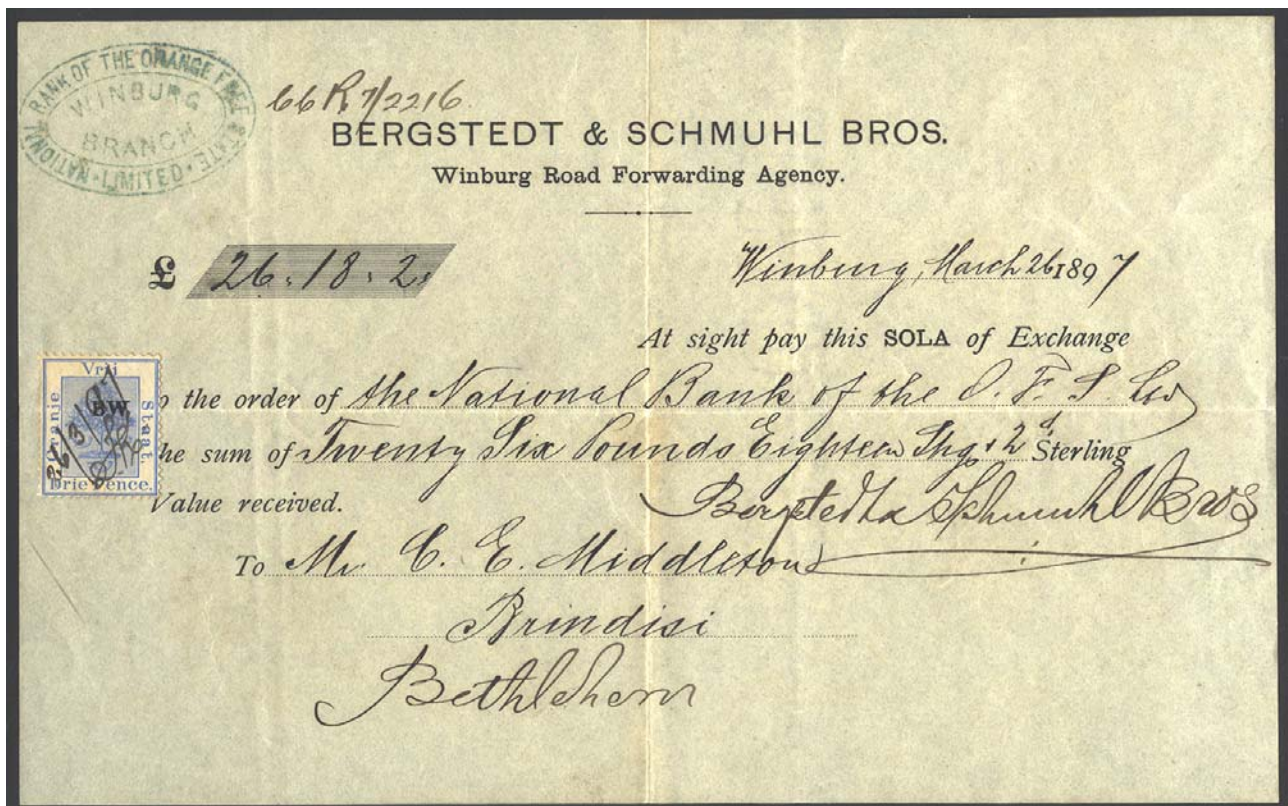 NATIONAL BANK OF THE ORANGE FREE STATE LIMITED
WINBURG
BRANCH
BERGSTEDT & SCHMUHL BROS.
Winburg Road Forwarding Agency.
£ 26.18.2
Winburg, March 26 1897
At sight pay this SOLA of Exchange
to the order of the National Bank of the O. F. S. Ltd
the sum of Twenty Six Pounds Eighteen Shgs & 2d Sterling
Value received.
Bergstedt & Schmuhl Bros
To Mr. C. E. Middleton
Brindisi
Bethlehem
Oranje Vrij Staat.
BW
26/3/97
Drie Pence.